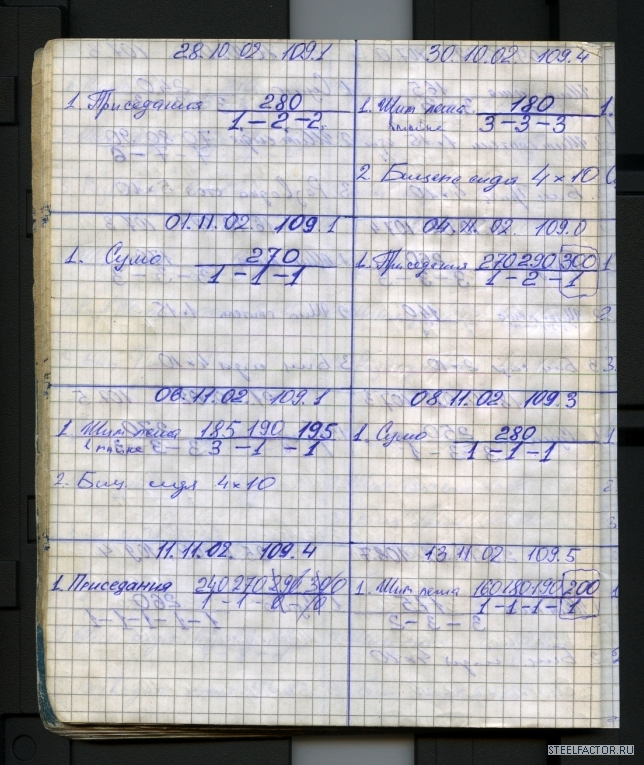 28.10.02 109.1
1. Приседания 280
1-2-2
30.10.02 109.4
1. Жим лежа 180
3-3-3
2 Бицепс сидя 4×10
01.11.02 109 1
1. Сумо 270
1-1-1
04.11.02 109.0
1. Приседания 270 290 300
1-2-1
06.11.02 109.1
1 Жим лежа 185 190 195
3-1-1
2. Биц. сидя 4×10
08.11.02. 109.3
1. Сумо 280
1-1-1
11.11.02. 109.4
1. Приседания 240 270 290 300
1-1-0-0
13.11.02 109.5
1. Жим лежа 160 180 190 200
1-1-1-1
STEELFACTOR.RU